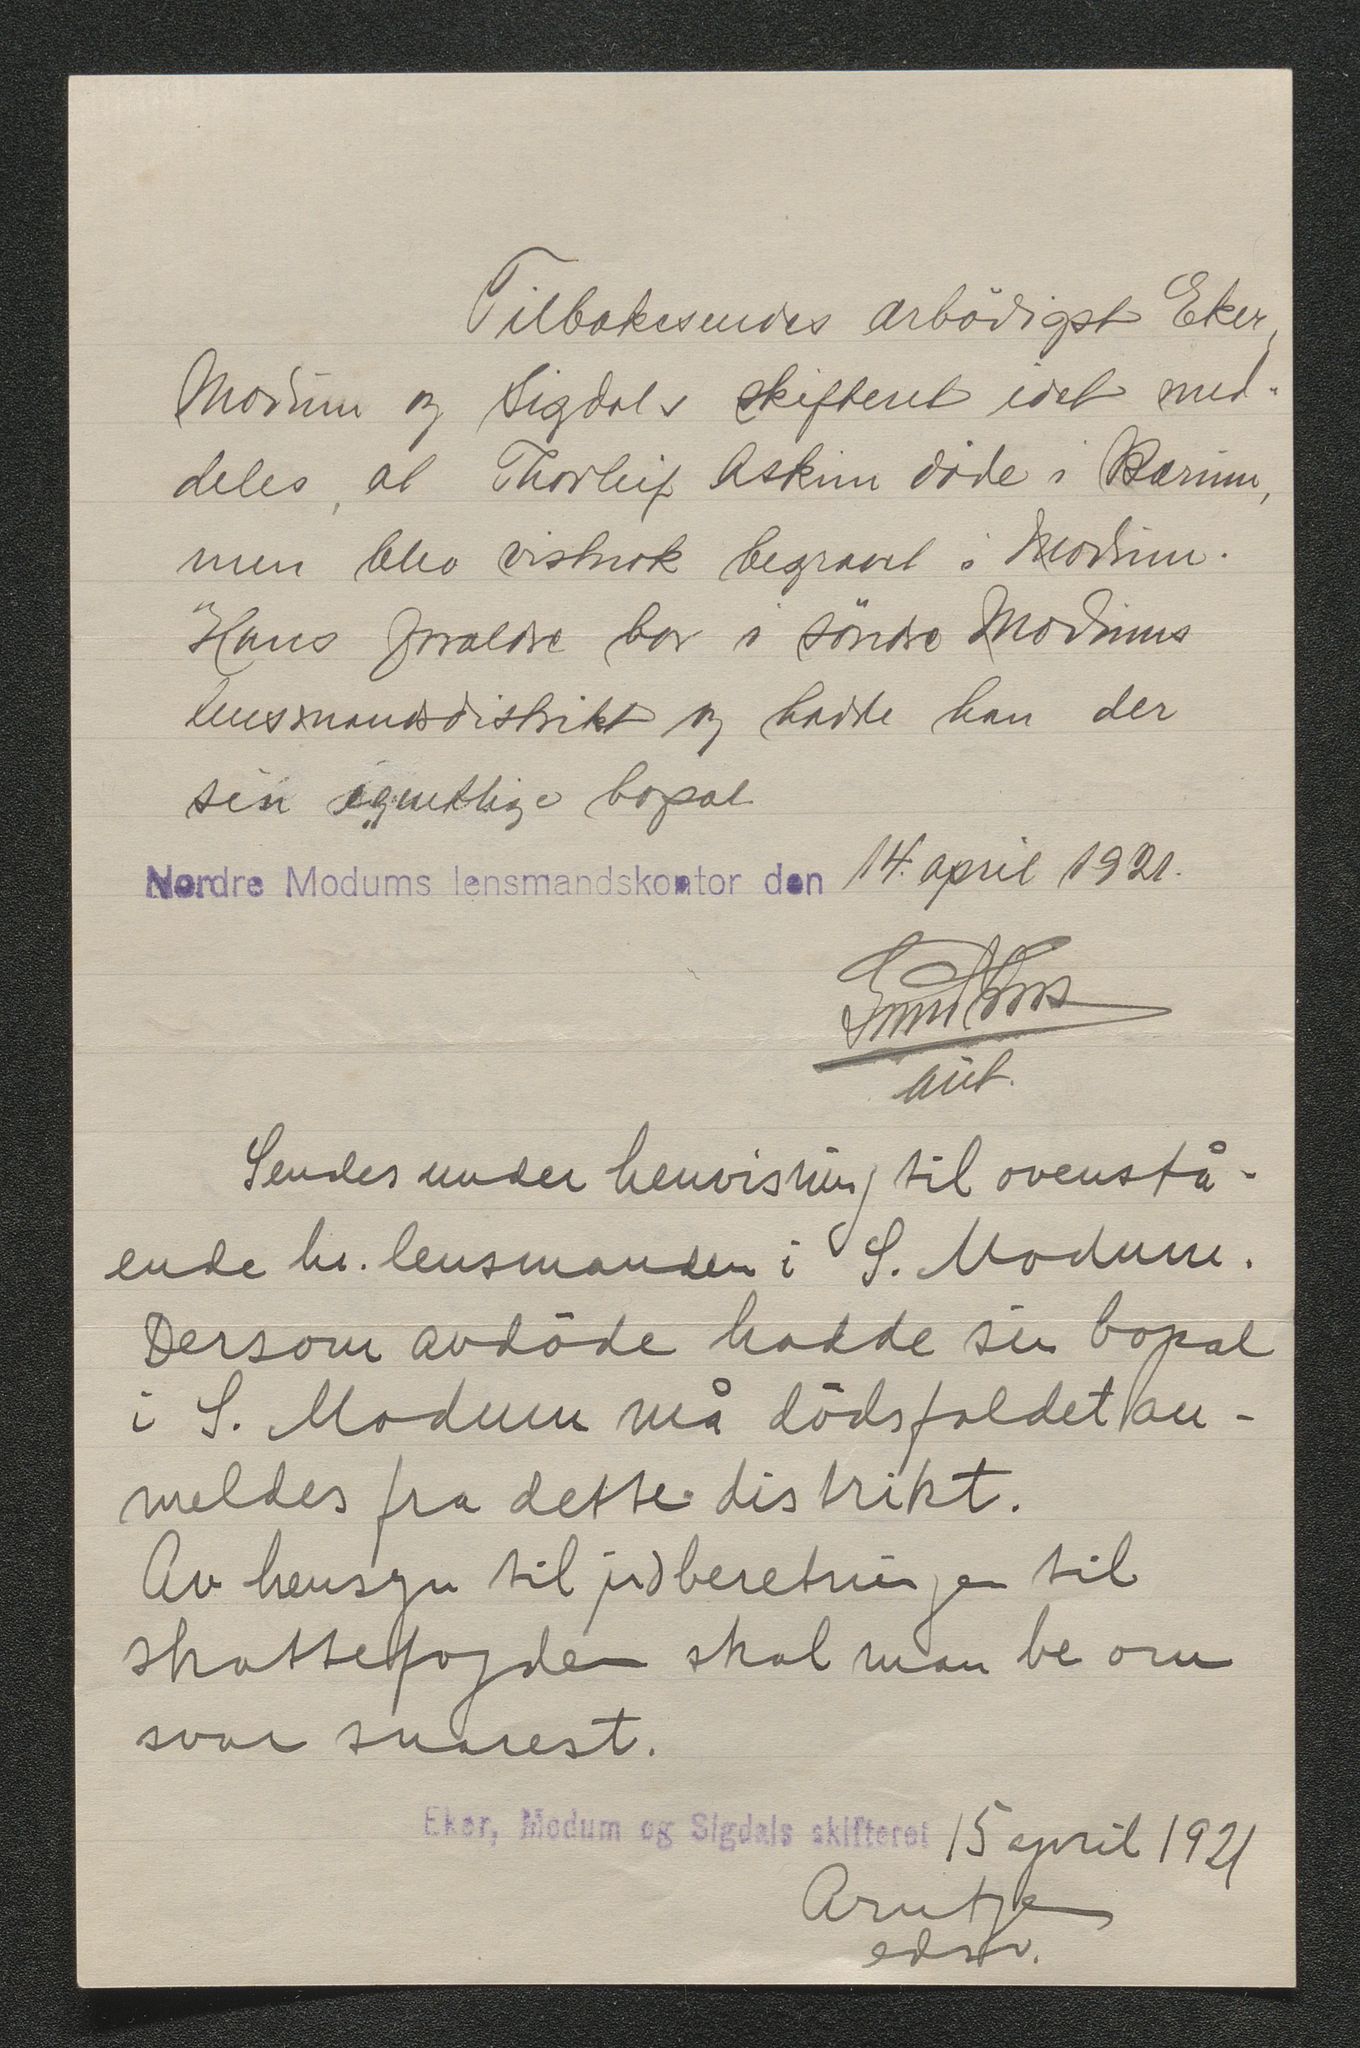 Tilbakesendes ærbödigst Eker,
Modum og Sigdals skifteret idet med-
deles, at Thorleif Askim döde i Bærum,
men blev vistnok begravet i Modum.
Hans forældre bor i söndre Modums
lensmandsdistrikt og hadde han der
sin egentlige bopæl
Nordre Modums lensmandskontor den 14. april 1921.
aut.
Sendes under henvisning til ovenstå-
ende hr. lensmanden i S. Modum.
Dersom avdöde hadde sin bopæl
i S. Modum må dödsfaldet an-
meldes fra dette distrikt.
Av hensyn til indberetningen til
skattefogden skal man be om
svar snarest.
Eker, Modum og Sigdals skifteret 15 april 1921
Arntzen
edsv.